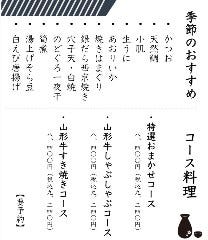 季節のおすすめ
・かつお
・天然鯛
・小肌
・生うに
・あおりいか
・焼きはまぐり
・銀だら西京焼き
・穴子天・白焼
・のどぐろ一夜干
・筍煮
・湯上げそら豆
・白えび唐揚げ
コース料理
・特選おまかせコース
・山形牛しゃぶしゃぶコース
・山形牛すき焼きコース
【要予約】